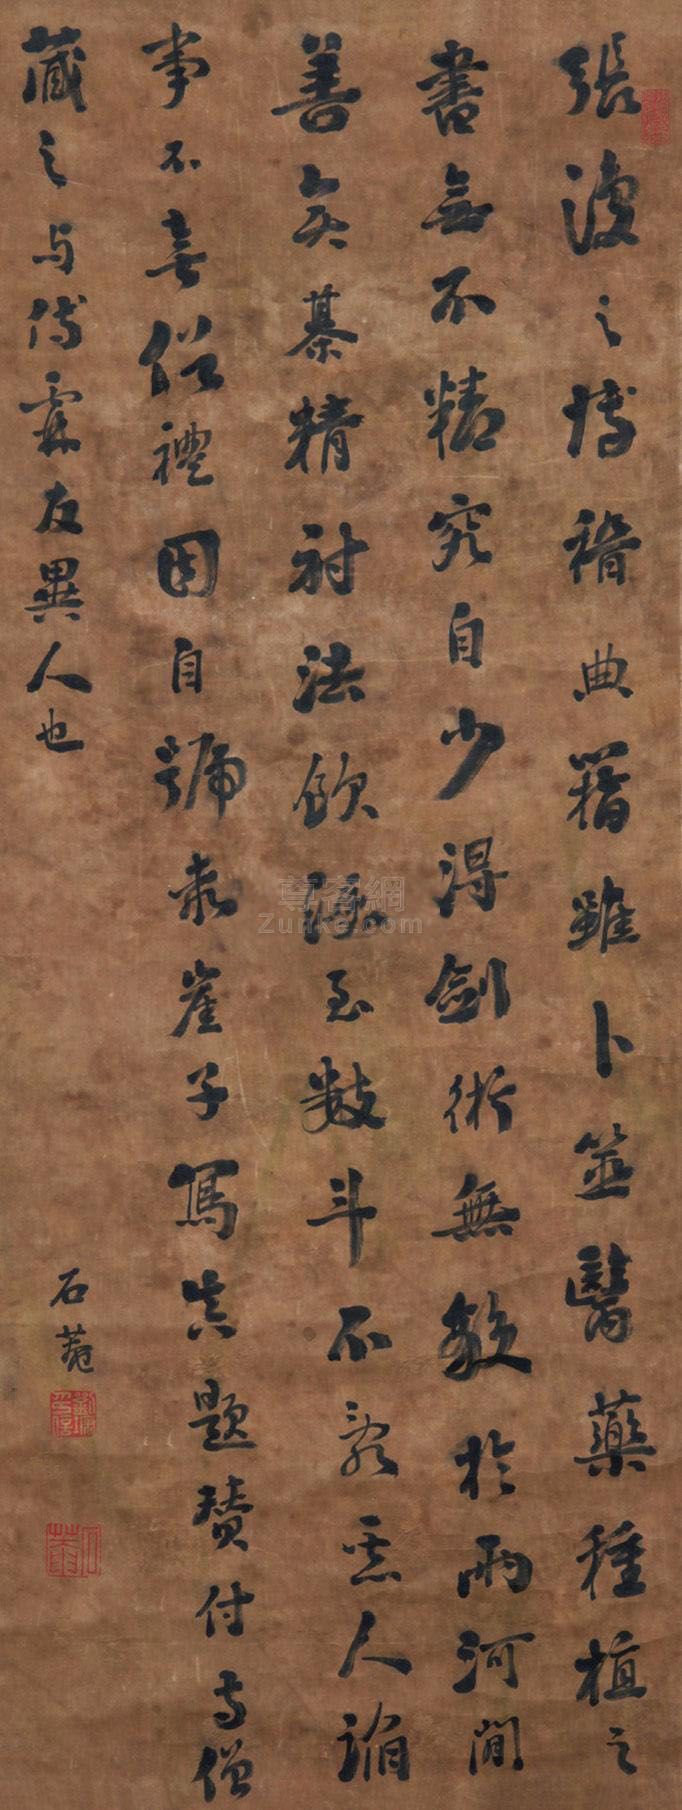 張復之博稽典籍雖卜筮醫藥種植之
書無不精究自少得劍術無敵於兩河間
善矣碁精射法飲酒至數斗不亂惡人諂
事不喜俗禮因自號乖崖子寫真題贊付寺僧
藏之与傅霖友異人也
石菴
尊客網
Zunke.com